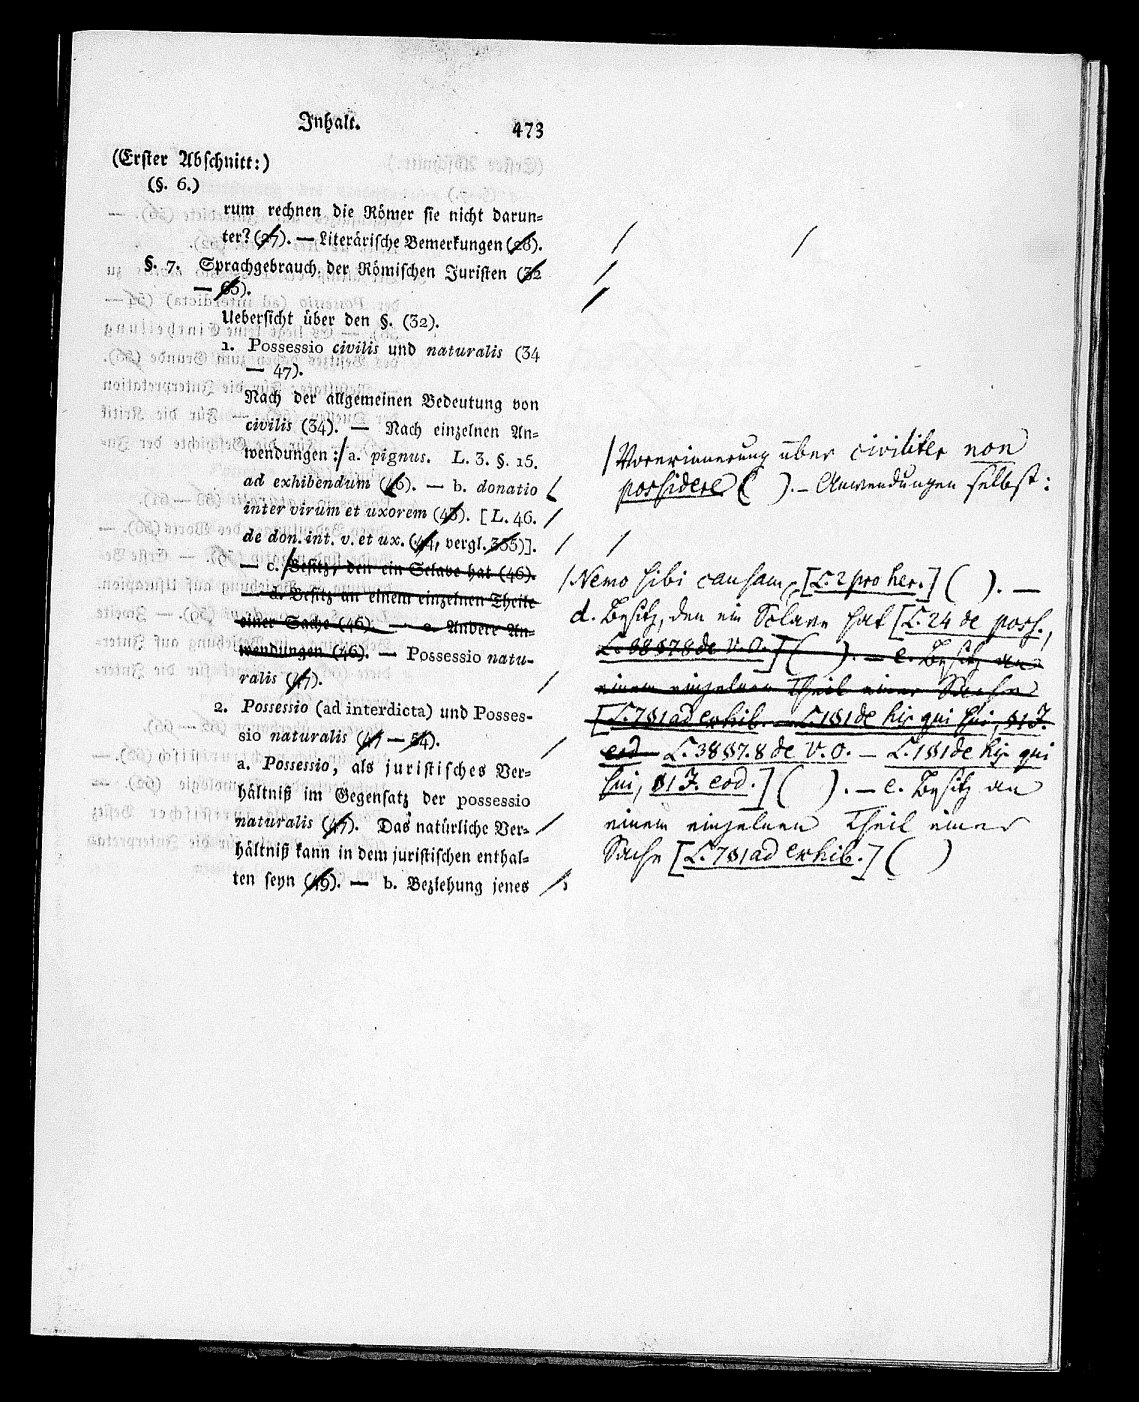 Inhalt. 473
(Erster Abschnitt:)
(§. 6.)
rum rechnen die Römer sie nicht darun=
ter? (27). — Literärische Bemerkungen (28).
§. 7. Sprachgebrauch der Römischen Juristen (32
— 65).
Uebersicht über den §. (32).
1. Possessio civilis und naturalis (34
— 47).
Nach der allgemeinen Bedeutung von
civilis (34). — Nach einzelnen An=
wendungen: a. pignus. L. 3. §. 15.
ad exhibendum (46). — b. donatio
inter virum et uxorem (43). [L. 46.
de don. int. v. et ux. (44, vergl. 355)].
— c. Besitz, den ein Sclave hat (46).
— d. Besitz an einem einzelnen Theile
einer Sache (46). — e. Andere An=
wendungen (46). — Possessio natu-
ralis (47).
2. Possessio (ad interdicta) und Posses-
sio naturalis (47 — 54).
a. Possessio, als juristisches Ver=
hältniß im Gegensatz der possessio
naturalis (47). Das natürliche Ver=
hältniß kann in dem juristischen enthal=
ten seyn (49). — b. Beziehung jenes
Vorerinnerung über civiliter non
possidere ( ). — Anwendungen selbst:
Nemo sibi causam, [L. 2 pro her.] ( ). —
d. Besitz, den ein Sclave hat [L. 24 de poss.,
L. 38 § 7.8 de V. O.] ( ). — e. Besitz an
einem einzelnen Theil einer Sache
[L. 7 § 1 ad exhib. — L. 1 § 1 de his qui sui, § 1 J.
eod L. 38 § 7. 8 de V. O. — L. 1 § 1 de his qui
sui, § 1 J. eod.] ( ). — e. Besitz an
einem einzelnen Theil einer
Sache [L. 7 § 1 ad exhib.] ( )